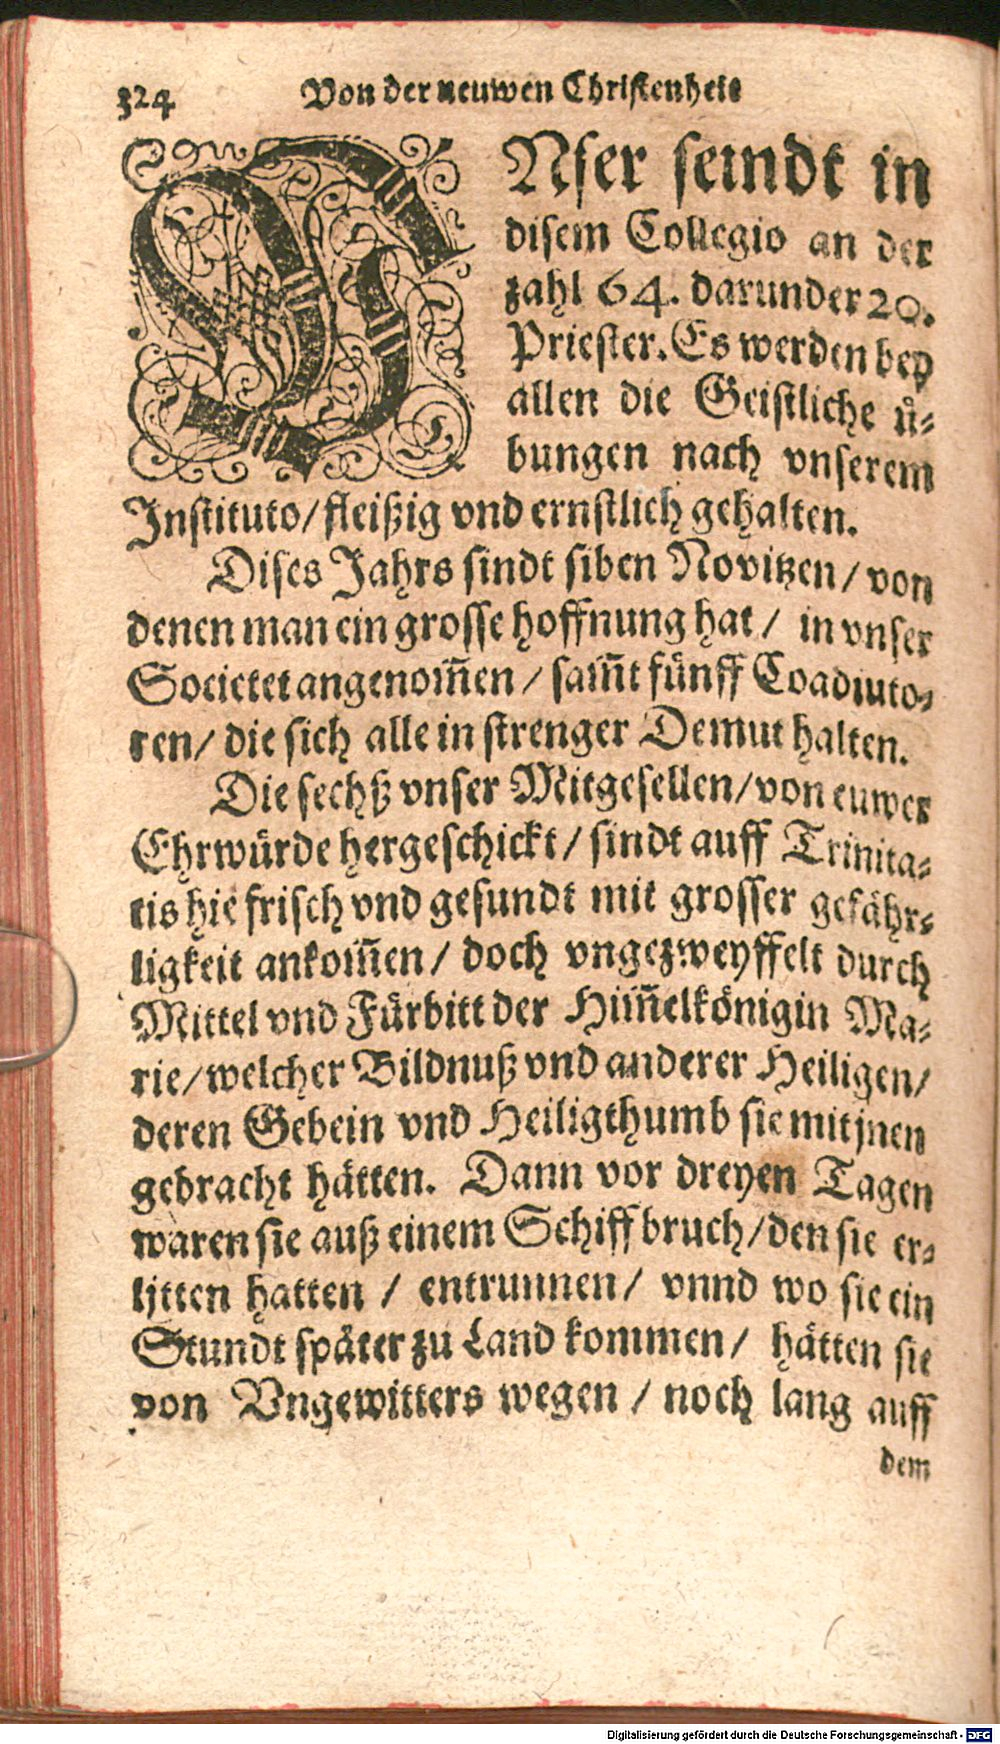 324 Von der neuwen Christenheit
VNser seindt in
disem Collegio an der
zahl 64. darunder 20.
Priester. Es werden bey
allen die Geistliche uͤ-
bungen nach vnserem
Instituto/ fleißig vnd ernstlich gehalten.
Dises Jahrs sindt siben Novitzen/ von
denen man ein grosse hoffnung hat/ in vnser
Societet angenom̃en/ sam̃t fünff Coadiuto-
ren/ die sich alle in strenger Demut halten.
Die sechß vnser Mitgesellen/ von euwer
Ehrwürde hergeschickt/ sindt auff Trinita-
tis hie frisch vnd gesundt mit grosser gefähr-
ligkeit ankom̃en/ doch vngezweyffelt durch
Mittel vnd Fürbitt der Him̃elkönigin Ma-
rie/ welcher Bildnuß vnd anderer Heiligen/
deren Gebein vnd Heiligthumb sie mit jnen
gebracht hätten. Dann vor dreyen Tagen
waren sie auß einem Schiffbruch/ den sie er-
litten hatten/ entrunnen/ vnnd wo sie ein
Stundt später zu Land kommen/ hätten sie
von Vngewitters wegen/ noch lang auff
dem
Digitalisierung gefördert durch die Deutsche Forschungsgemeinschaft - DFG